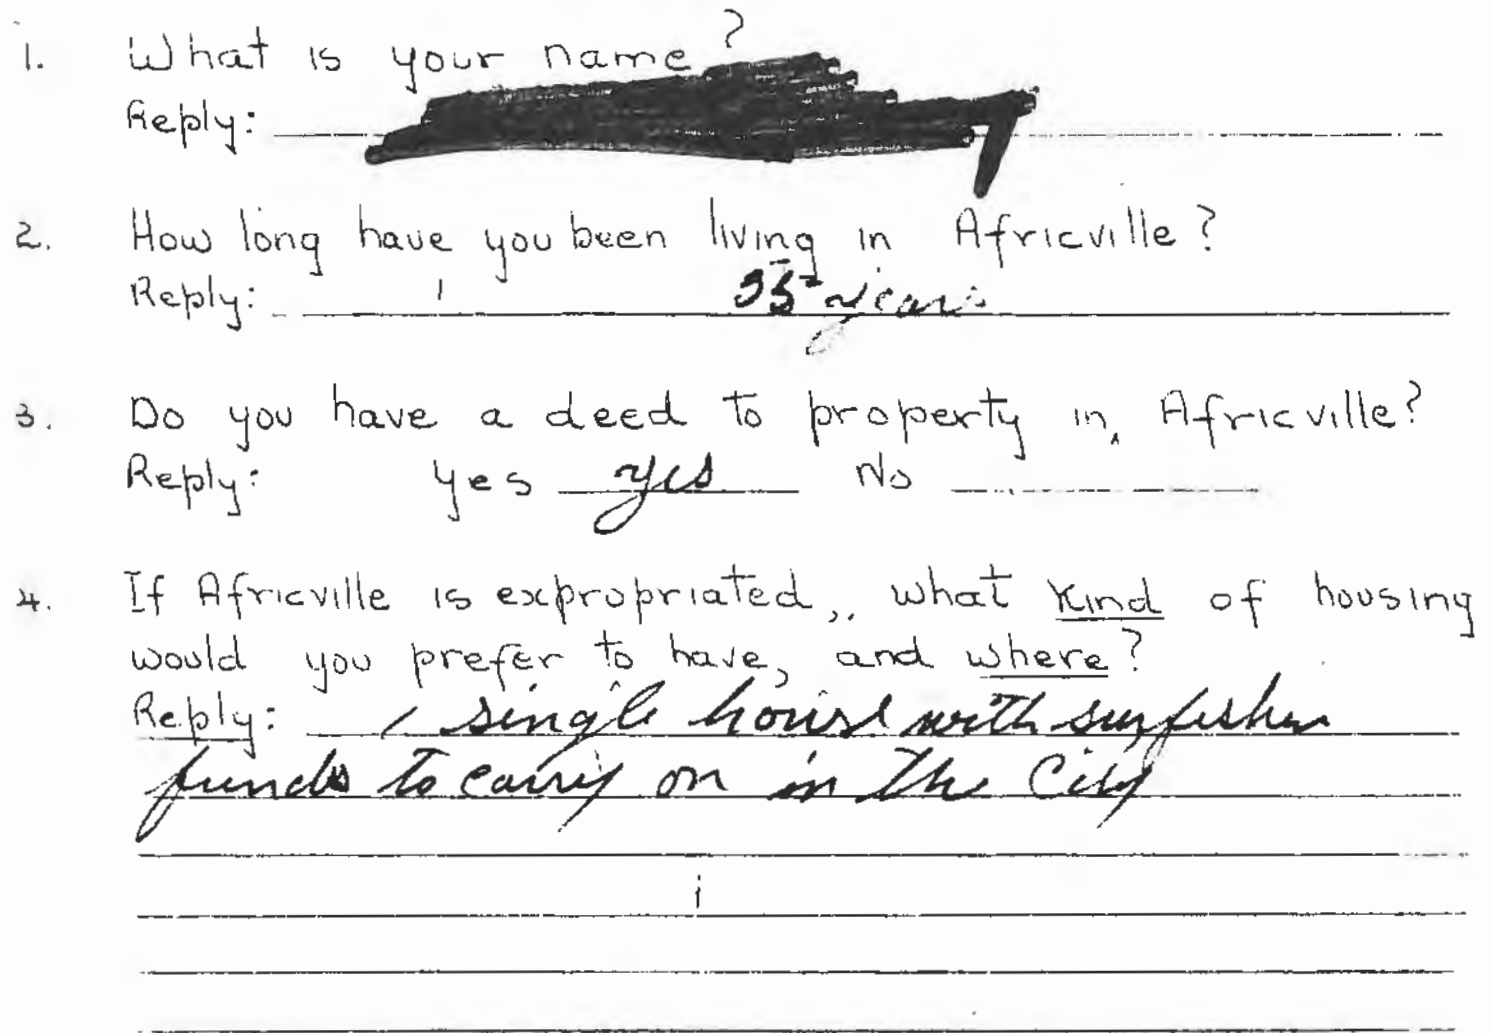 1. What is your name?
Reply:
2. How long have you been living in Africville?
Reply: 35 years
3. Do you have a deed to property in, Africville?
Reply: Yes yes No
4. If Africville is expropriated,, what kind of housing
would you prefer to have, and where?
Reply: single house with
funds to carry on in the City